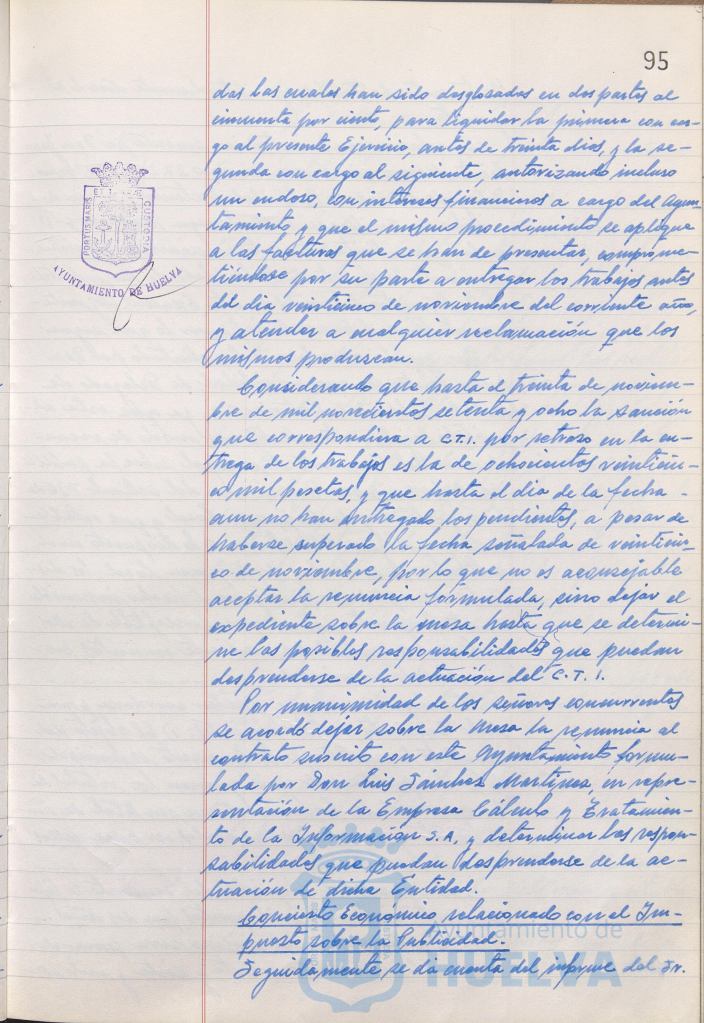 95
das las cuales han sido desglosadas en dos partes al
cincuenta por ciento, para liquidar la primera con car-
go al presente Ejercicio, antes de treinta dias, y la se-
gunda con cargo al siguiente, autorizando incluso
un endoso, con intereses financieros a cargo del Ayun-
tamiento y que el mismo procedimiento se aplique
a las facturas que se han de presentar, comprome-
tiéndose por su parte a entregar los trabajos antes
del dia veinticinco de noviembre del corriente año,
y atender a cualquier reclamación que los
mismos produzcan.
Considerando que hasta el treinta de noviem-
bre de mil novecientos setenta y ocho la sanción
que correspondiera a C.T.I. por retraso en la en-
trega de los trabajos es la de ochocientas veinticin-
co mil pesetas, y que hasta el dia de la fecha
aun no han entregado los pendientes, a pesar de
haberse superado la fecha señalada de veinticin-
co de noviembre, por lo que no es aconsejable
aceptar la renuncia formulada, sino dejar el
expediente sobre la mesa hasta que se determi-
ne las posibles responsabilidades que puedan
desprenderse de la actuación del C.T.I.
Por unanimidad de los señores concurrentes
se acordó dejar sobre la Mesa la renuncia al
contrato suscrito con este Ayuntamiento formu-
lada por Don Luis Sánchez Martínez, en repre-
sentación de la Empresa Cálculo y Tratamien-
to de la Información S.A, y determinar las respon-
sabilidades que puedan desprenderse de la ac-
tuación de dicha Entidad.
Concierto Económico relacionado con el Im-
puesto sobre la Publicidad.
Seguidamente se da cuenta del informe del Sr.
PORTUS MARIS
CUSTODIA
AYUNTAMIENTO DE HUELVA
Ayuntamiento de
HUELVA